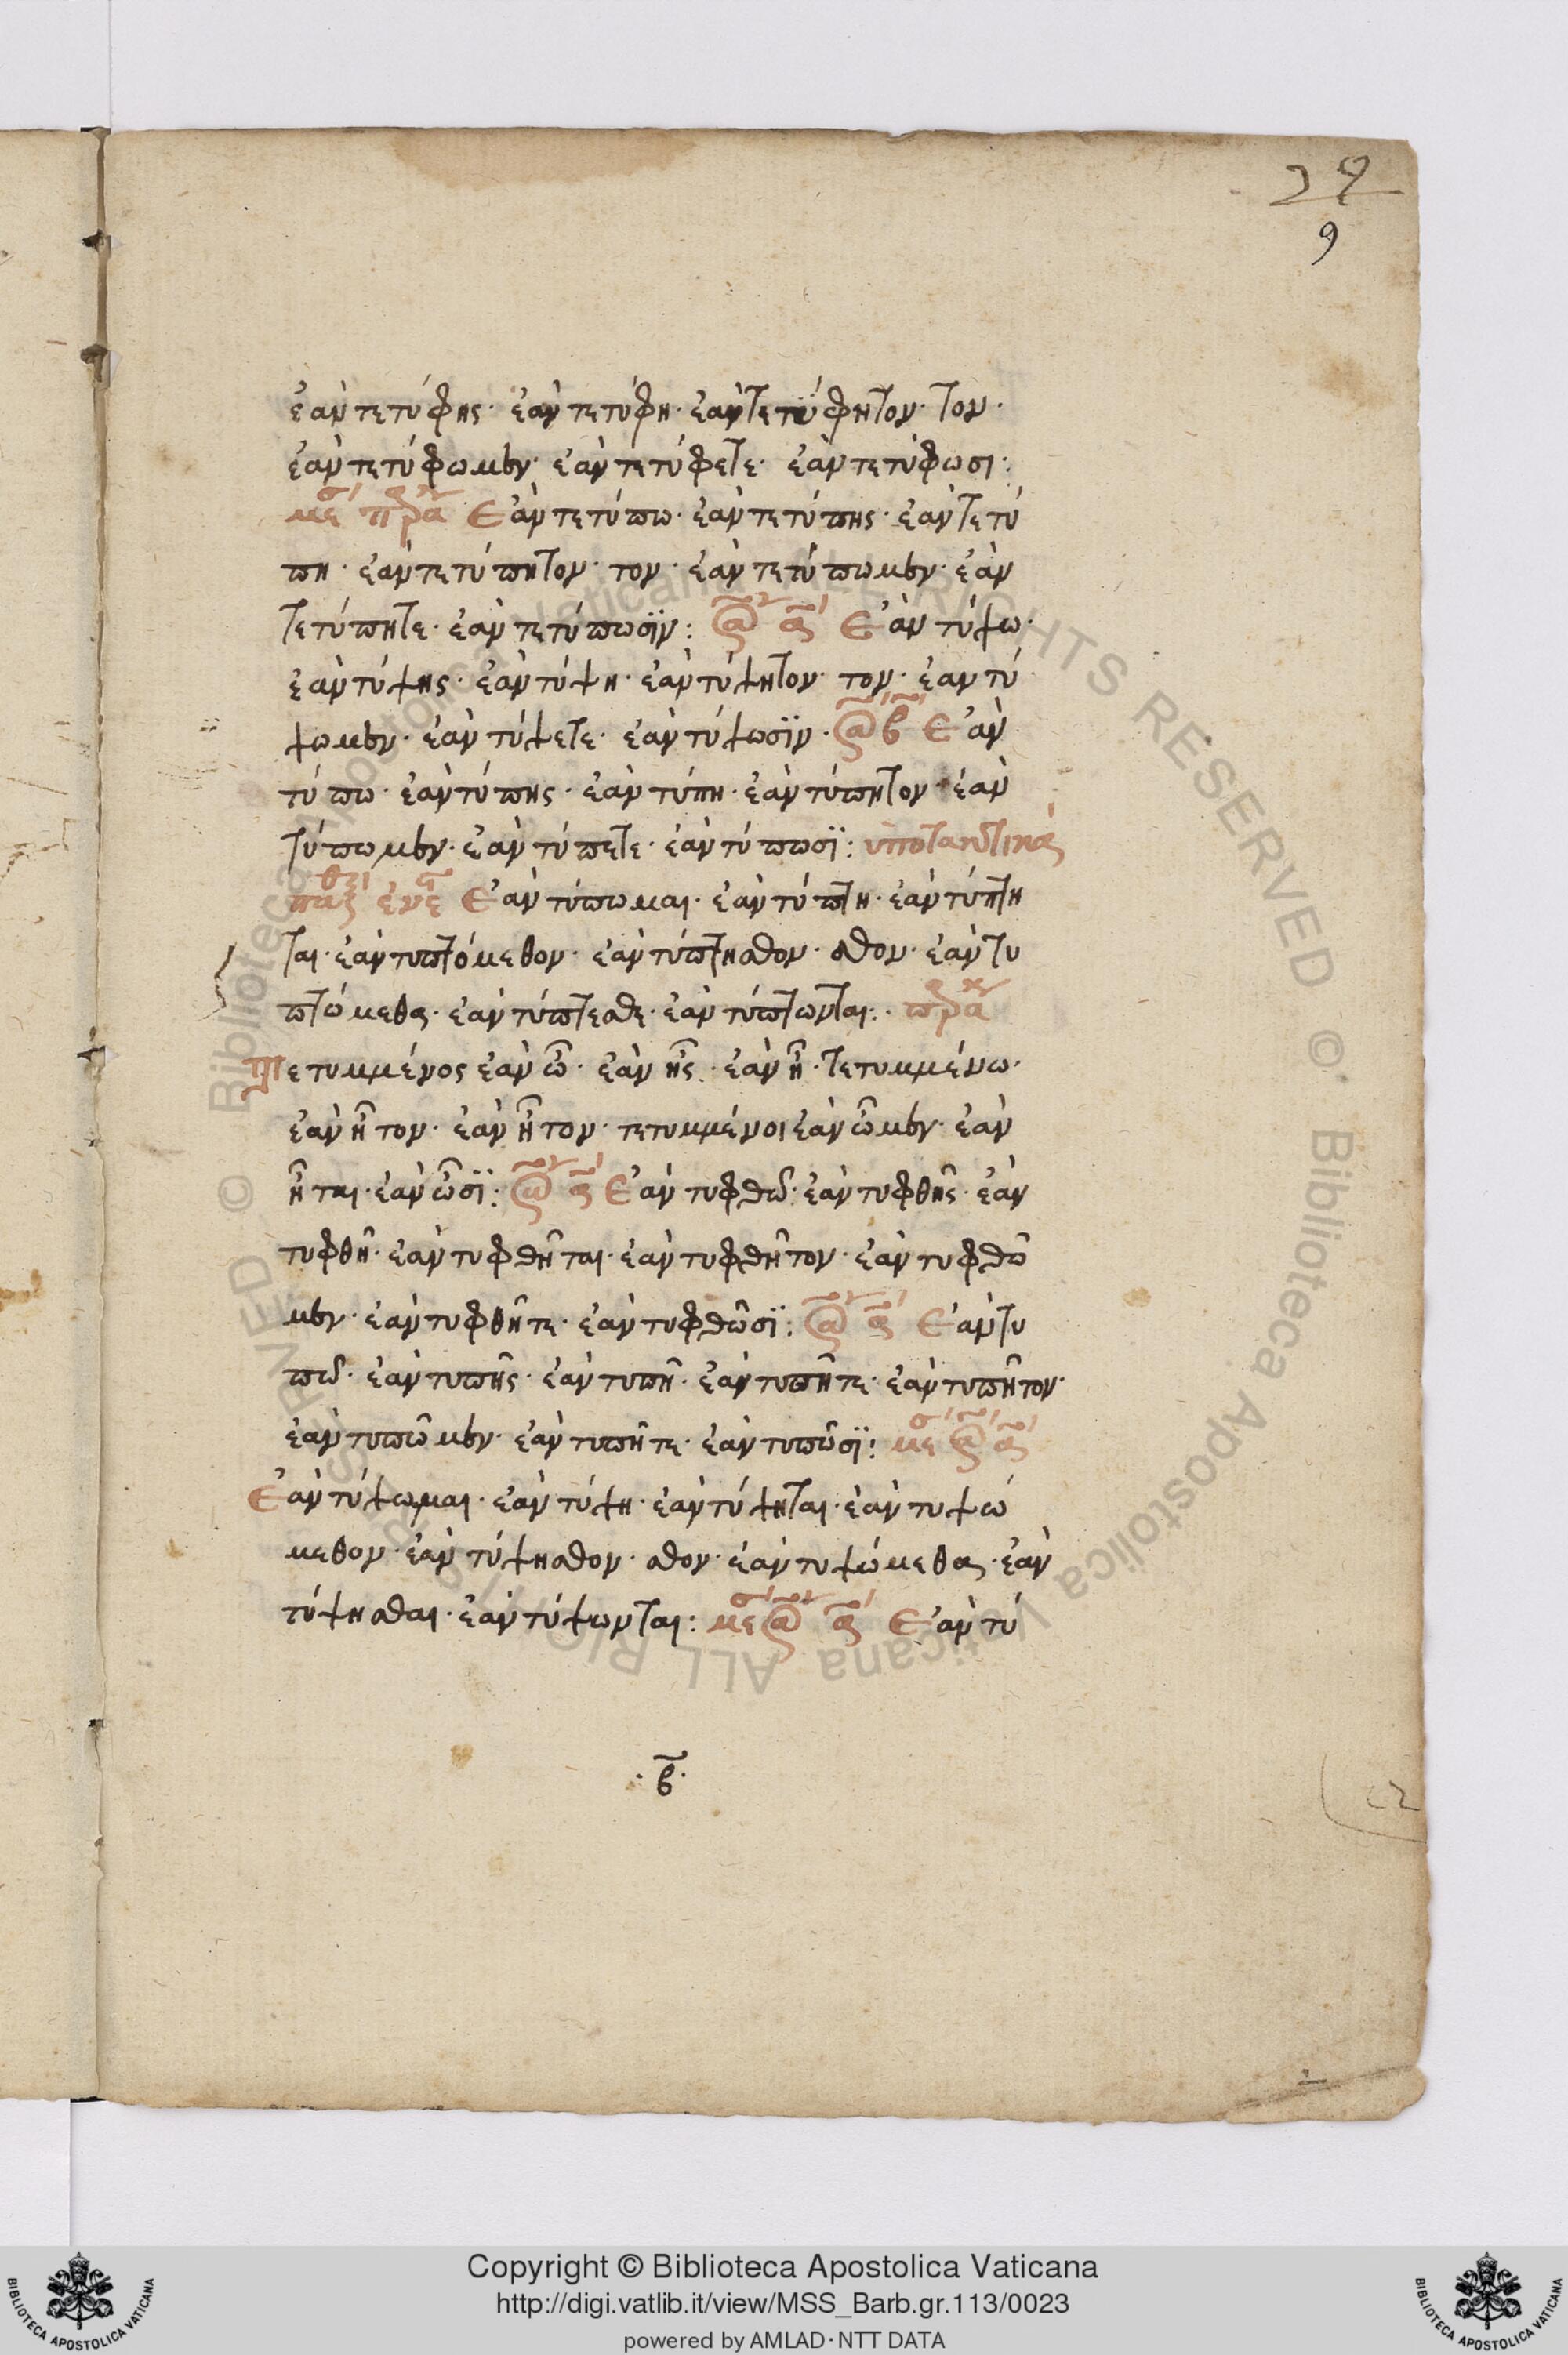 29
9
ἐὰν τετύφης· ἐὰν τετύφη· ἐὰν τετύφητον· τον·
ἐὰν τετύφωμεν· ἐὰν τετύφετε· ἐὰν τετύφωσι:
με πρα Ἐὰν τετύπω· ἐὰν τετύπης· ἐὰν τετύ
πη· ἐὰν τετύπητον· τον· ἐὰν τετύπωμεν· ἐὰν
τετύπητε· ἐὰν τετύπωσϊν: α Ἐὰν τύψω·
ἐὰν τύψης· ἐὰν τύψη· ἐὰν τύψητον· τον· ἐαν τύ
ψωμεν· ἐὰν τύψετε· ἐὰν τύψωσϊν· β Ἐὰν
τύπω· ἐὰν τύπης· ἐὰν τύπη· ἐὰν τύπητον· ἐὰν
τύπωμεν· ἐὰν τύπετε· ἐὰν τύπωσϊ: ὑποτακτικὰ
παθ ἐνε Ἐὰν τύπωμαι· ἐὰν τύπτη· ἐὰν τύπτη
ται· ἐὰν τυπτόμεθον· ἐὰν τύπτησθον· σθον· ἐὰν τυ
πτώμεθα· ἐὰν τύπτεσθε· ἐὰν τύπτωνται: πρα
Τετυμμένος ἐὰν ὦ· ἐὰν ῆς· ἐὰν ῆ· τετυμμένω·
ἐὰν ῆτον· ἐὰν ῆτον· τετυμμένοι ἐὰν ὦμεν· ἐὰν
ῆται· ἐὰν ὦσϊ: α Ἐὰν τυφθῶ· ἐὰν τυφθῆς· ἐὰν
τυφθῆ· ἐὰν τυφθῆται· ἐὰν τυφθῆτον· ἐὰν τυφθῶ
μεν· ἐὰν τυφθῆτε· ἐὰν τυφθῶσϊ: Ἐὰν τυ
πῶ· ἐὰν τυπῆς· ἐὰν τυπῆ· ἐὰν τυπῆτε· ἐὰν τυπῆτον·
ἐὰν τυπῶμεν· ἐὰν τυπῆτε· ἐὰν τυπῶσϊ: με α
Ἐὰν τύψωμαι· ἐὰν τύψη· ἐὰν τύψηται· ἐὰν τυψώ
μεθον· ἐὰν τύψησθον· σθον· ἐὰν τυψώμεθα· ἐὰν
τύψησθαι· ἐὰν τύψωνται: με α Ἐὰν τύ
·β·
Copyright © Biblioteca Apostolica Vaticana
http://digi.vatlib.it/view/MSS_Barb.gr.113/0023
powered by AMLAD·NTT DATA